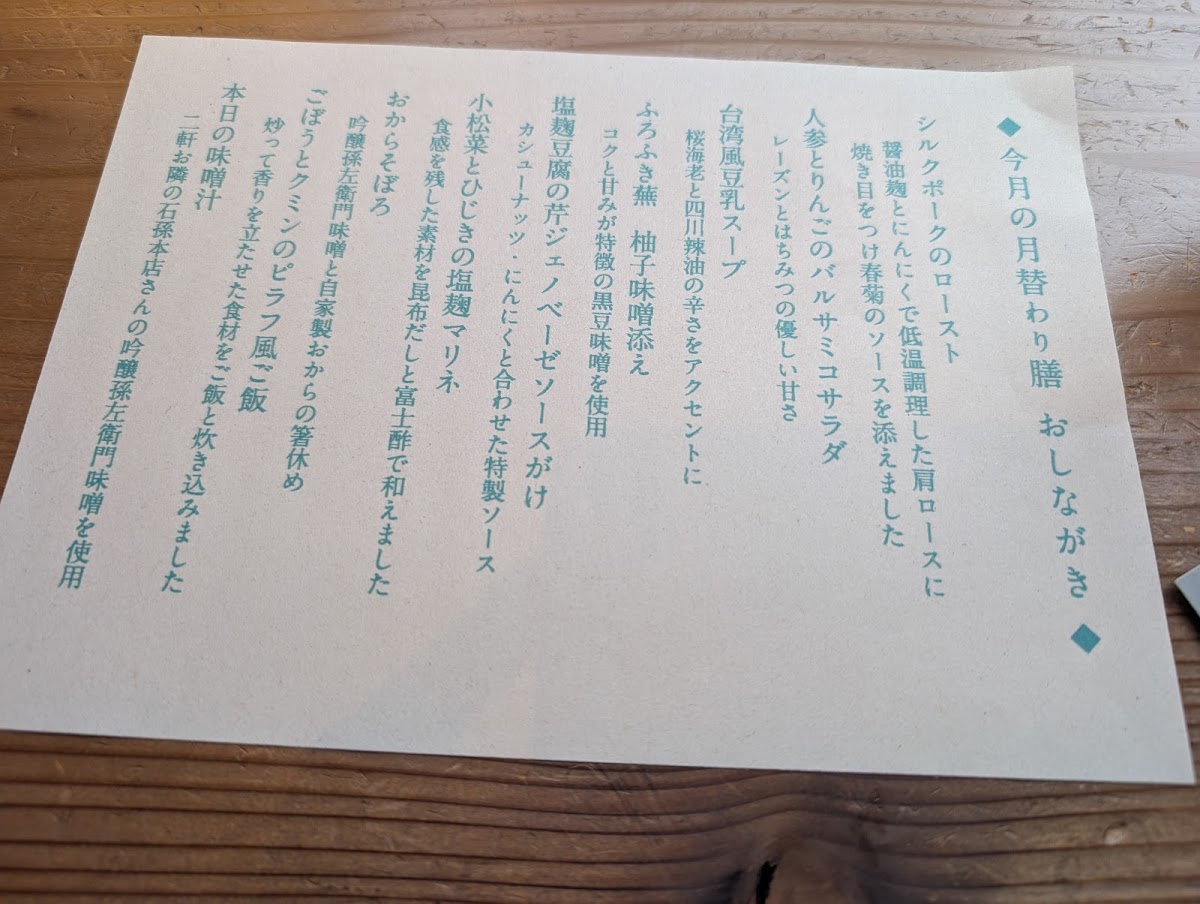 ◆今月の月替わり膳 おしながき◆
シルクポークのロースト
醤油麹とにんにくで低温調理した肩ロースに
焼き目をつけ春菊のソースを添えました
人参とりんごのバルサミコサラダ
レーズンとはちみつの優しい甘さ
台湾風豆乳スープ
桜海老と四川辣油の辛さをアクセントに
ふろふき蕪　柚子味噌添え
コクと甘みが特徴の黒豆味噌を使用
塩麹豆腐の芹ジェノベーゼソースがけ
カシューナッツ・にんにくと合わせた特製ソース
小松菜とひじきの塩麹マリネ
食感を残した素材を昆布だしと富士酢で和えました
おからそぼろ
吟醸孫左衛門味噌と自家製おからの箸休め
ごぼうとクミンのピラフ風ご飯
炒って香りを立たせた食材をご飯と炊き込みました
本日の味噌汁
二軒お隣の石孫本店さんの吟醸孫左衛門味噌を使用